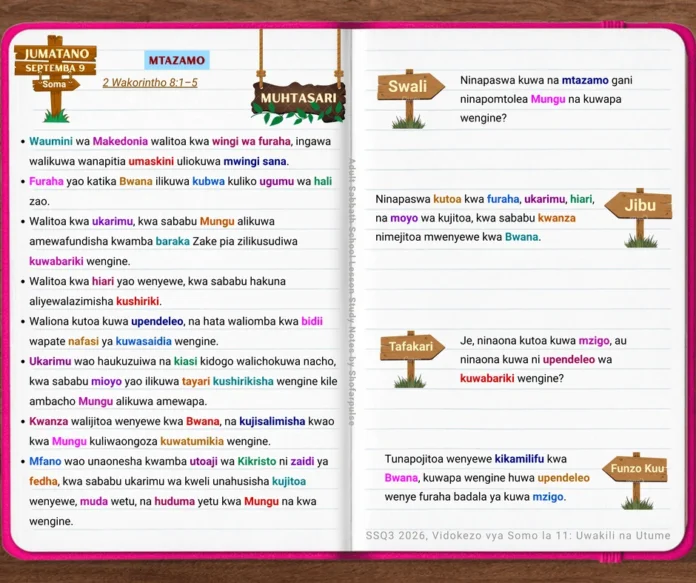 JUMATANO
SEPTEMBA 9
Soma
MTAZAMO
2 Wakorintho 8:1–5
MUHTASARI
• Waumini wa Makedonia walitoa kwa wingi wa furaha, ingawa
walikuwa wanapitia umaskini uliokuwa mwingi sana.
• Furaha yao katika Bwana ilikuwa kubwa kuliko ugumu wa hali
zao.
• Walitoa kwa ukarimu, kwa sababu Mungu alikuwa
amewafundisha kwamba baraka Zake pia zilikusudiwa
kuwabariki wengine.
• Walitoa kwa hiari yao wenyewe, kwa sababu hakuna
aliyewalazimisha kushiriki.
• Waliona kutoa kuwa upendeleo, na hata waliomba kwa bidii
wapate nafasi ya kuwasaidia wengine.
• Ukarimu wao haukuzuiwa na kiasi kidogo walichokuwa nacho,
kwa sababu mioyo yao ilikuwa tayari kushirikisha wengine kile
ambacho Mungu alikuwa amewapa.
• Kwanza walijitoa wenyewe kwa Bwana, na kujisalimisha kwao
kwa Mungu kuliwaongoza kuwatumikia wengine.
• Mfano wao unaonesha kwamba utoaji wa Kikristo ni zaidi ya
fedha, kwa sababu ukarimu wa kweli unahusisha kujitoa
wenyewe, muda wetu, na huduma yetu kwa Mungu na kwa
wengine.
Adult Sabbath School Lesson Study Notes by Shofarpulse
Swali
Ninapaswa kuwa na mtazamo gani
ninapomtolea Mungu na kuwapa
wengine?
Jibu
Ninapaswa kutoa kwa furaha, ukarimu, hiari,
na moyo wa kujitoa, kwa sababu kwanza
nimejitoa mwenyewe kwa Bwana.
Tafakari
Je, ninaona kutoa kuwa mzigo, au
ninaona kuwa ni upendeleo wa
kuwabariki wengine?
Funzo Kuu
Tunapojitoa wenyewe kikamilifu kwa
Bwana, kuwapa wengine huwa upendeleo
wenye furaha badala ya kuwa mzigo.
SSQ3 2026, Vidokezo vya Somo la 11: Uwakili na Utume